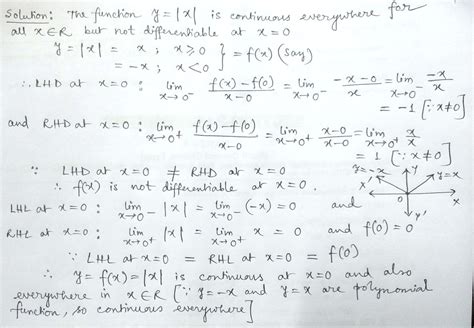 Solution: The function y = |x| is continuous everywhere for
all x ∈ R but not differentiable at x = 0
y = |x| = x ; x ≥ 0 } = f(x) (say)
= -x ; x < 0
∴ LHD at x = 0 : lim x→0⁻ (f(x) - f(0))/(x - 0) = lim x→0⁻ (-x - 0)/x = lim x→0⁻ -x/x
= -1 [∵ x ≠ 0]
and RHD at x = 0 : lim x→0⁺ (f(x) - f(0))/(x - 0) = lim x→0⁺ (x - 0)/(x - 0) = lim x→0⁺ x/x
= 1 [∵ x ≠ 0]
∵ LHD at x = 0 ≠ RHD at x = 0
∴ f(x) is not differentiable at x = 0.
y = -x Y y = x
X' O X
Y'
LHL at x = 0 : lim x→0⁻ |x| = lim x→0⁻ (-x) = 0 and
RHL at x = 0 : lim x→0⁺ |x| = lim x→0⁺ x = 0 and f(0) = 0
∵ LHL at x = 0 = RHL at x = 0 = f(0)
∴ y = f(x) = |x| is continuous at x = 0 and also
everywhere in x ∈ R [∵ y = -x and y = x are polynomial
function, so continuous everywhere]